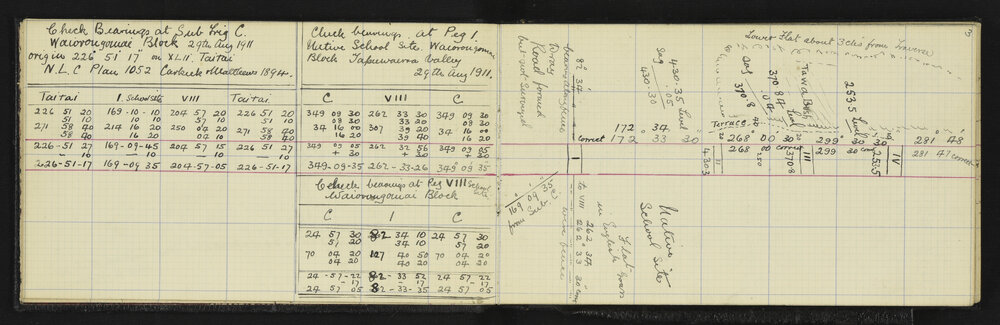 Check Bearings at Sub Trig C.
Waiorongomai Block 29th Aug 1911
origin 226° 51' 17" on XLII. Taitai
N.L.C Plan 1052 Carkeek & Matthews 1894.
Taitai I. School site VIII Taitai
226 51 20 169-10-10 204 57 20 226 51 20
51 10 10 10 57 10 51 10
271 58 40 214 16 20 250 04 20 271 58 40
58 40 16 20 04 20 58 40
226-51-27 169-09-45 204-57 15 226 51 27
— 10 — 10 — 10 — 10
226-51-17 169-09 35 204-57-05 226-51-17
Check bearings at Peg I.
Native School Site, Waiorongomai
Block Tapuwaeroa Valley
29th Aug 1911.
C VIII C
349 09 30 262 33 30 349 09 30
08 30 33 00 08 30
34 16 00 307 39 20 34 16 00
16 20 39 40 16 20
349 09 05 262 32 56 349 09 05
+ 30 + 30 + 30
349-09-35 262-33-26 349 09 35
Check bearings at Peg VIII School site
Waiorongomai Block
C I C
24 57 30 82 34 10 24 57 30
57 20 34 10 57 20
70 04 20 127 40 50 70 04 20
04 20 40 20 04 20
24-57-22 82-33 52 24 57-22
-17 -17 -17
24 57 05 82-33-35 24 57 05
3
Lower Flat about 3 chs from Traverse
Dray
Road formed
but not Surveyed
82 34
bears along fence
430.35 Level
.05
Sag 430.30
370.84
04
Sag 370.8
Level
Tawa Bush
2535 Level
Terrace
172 . 34
correct 172 33 30
268° 00 30
268 00 correct
299° 30 20
299 30 cor
281 48
281 47 correct
I
III
III
IV
4303
3708
2535
169 09 35
from Sub C
to VIII 262.34
262 33 30 cor
wire fence
in English Grass
Flat
Native
School Site